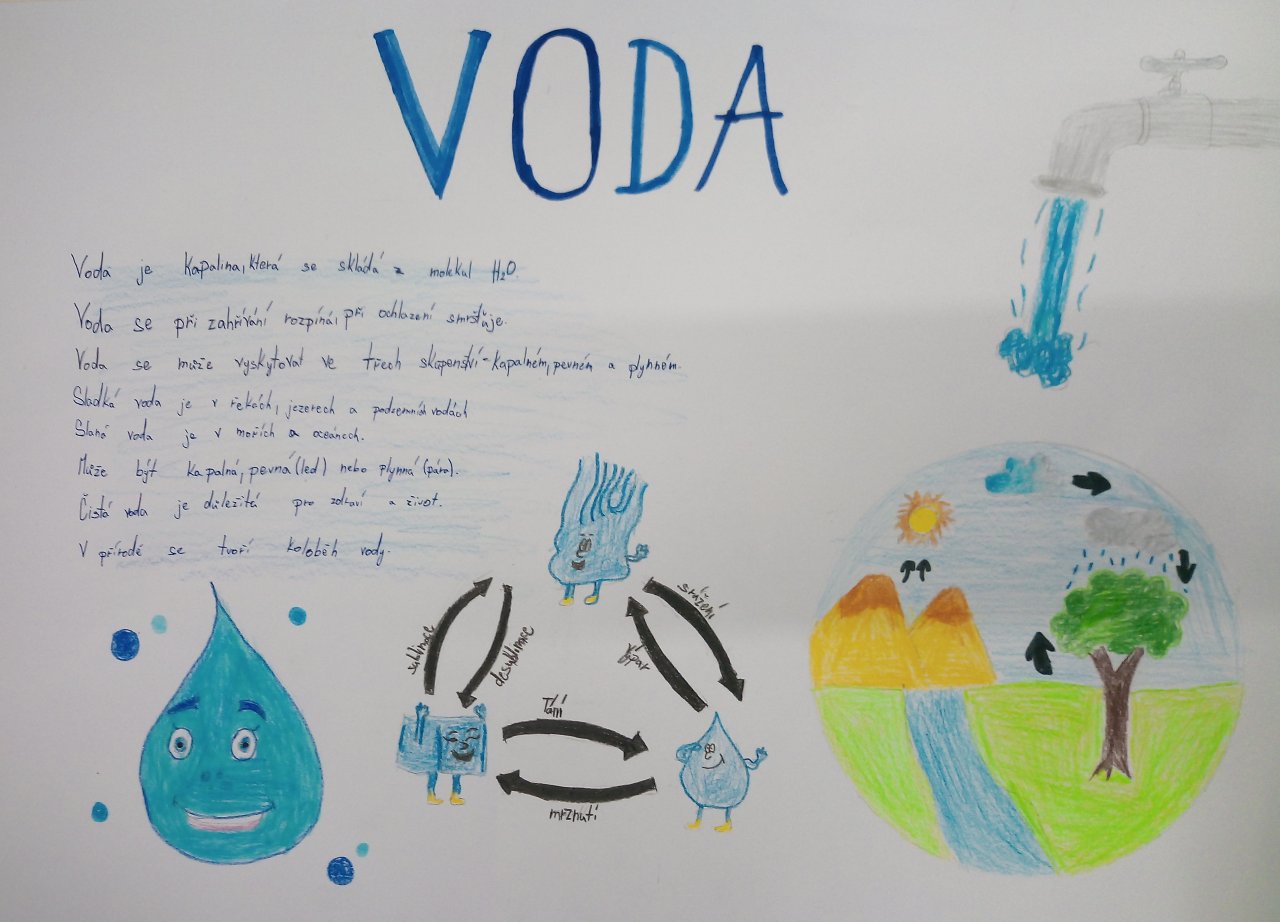 VODA
Voda je kapalina, která se skládá z molekul H₂O.
Voda se při zahřívání rozpíná, při ochlazení smršťuje.
Voda se může vyskytovat ve třech skupenství - kapalném, pevném a plynném.
Sladká voda je v řekách, jezerech a podzemních vodách
Slaná voda je v mořích a oceánech.
Může být kapalná, pevná (led) nebo plynná (pára).
Čistá voda je důležitá pro zdraví a život.
V přírodě se tvoří koloběh vody.
sublimace
desublimace
srážení
výpar
Tání
mrznutí